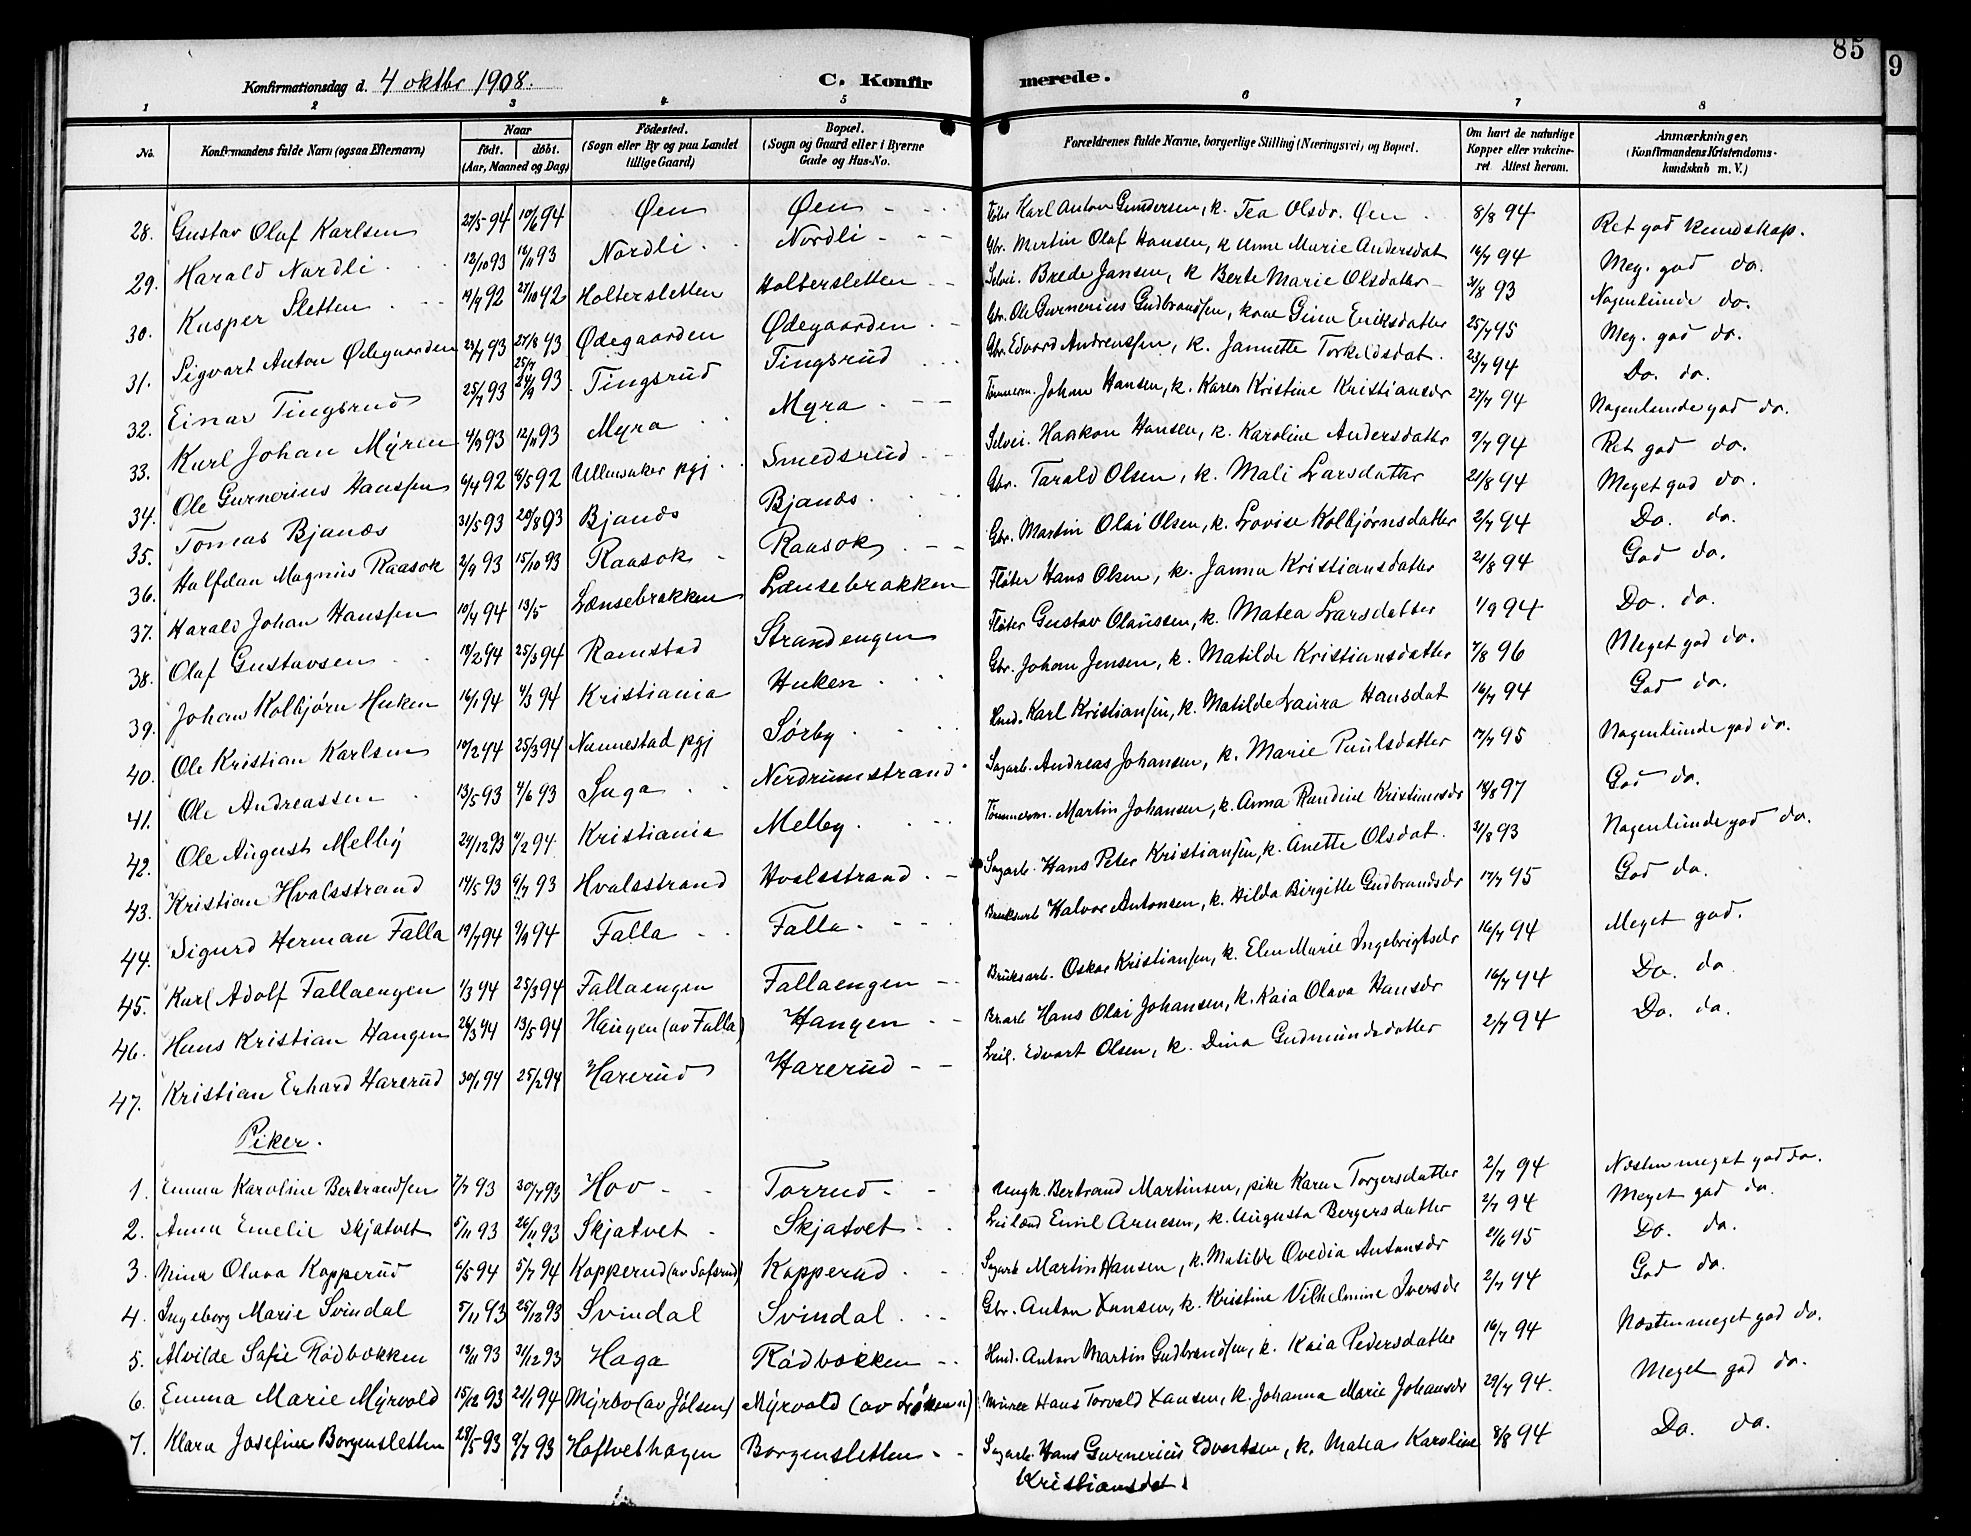 85
9
Konfirmationsdag d. 4 oktbr 1908.
C. Konfirmerede.
1 2 3 4 5 6 7 8
No. Konfirmandens fulde Navn (ogsaa Efternavn) Naar födt. döbt. (Aar, Maaned og Dag) Födested. (Sogn eller By og paa Landet tillige Gaard) Bopæl. (Sogn og Gaard eller i Byerne Gade og Hus-No. Forældrenes fulde Navne, borgerlige Stilling (Næringsvei) og Bopæl. Om havt de naturlige Kopper eller vaccineret Attest herom. Anmærkninger. (Konfirmandens Kristendomskundskab m. V.)
28. Gustav Olaf Karlsen 27/5 94 10/6 94 Øen Øen Karl Anton Gundersen, k. Tea Olsdr. Øen 8/8 94 Ret god kundskap.
29. Harald Nordli 12/10 93 19/11 93 Nordli Nordli Gbr. Martin Olaf Hansen, k Anne Marie Andersdat 16/7 94 Meg. god do.
30. Kasper Sletten 19/9 92 27/10 92 Holtersletten Holtersletten Selvei. Brede Jansen, k Berte Marie Olsdatter 31/8 93 Nogenlunde do.
31. Sigvart Anton Ødegaarden 23/7 93 27/8 93 Ødegaarden Ødegaarden Gbr. Ole Gunerius Gudbrandsen, kone Gina Eriksdatter 25/7 95 Meg. god do.
32. Einar Tingsrud 25/7 93 24/9 93 Tingsrud Tingsrud Gbr. Edvard Andreassen, k. Jannette Torkildsdat. 23/7 94 Do. do.
33. Karl Johan Myren 4/9 93 12/11 93 Myra Myra Tømmerm. Johan Hansen, k. Karen Kristine Kristiansdr 27/7 94 Nogenlunde god do.
34. Ole Gunerius Hanssen 6/4 92 8/5 92 Ullensaker pgj. Smedsrud Selvei. Haakon Hansen, k. Karoline Andersdatter 9/7 94 Ret god do.
35. Tomas Bjanes 31/5 93 20/8 93 Bjanes Bjanes Gbr. Tarald Olsen, k. Mali Larsdatter 21/8 94 Meget god do.
36. Halfdan Magnus Raasok 2/9 93 15/10 93 Raasok Raasok Gbr. Martin Olai Olsen, k. Lovise Kolbjørnsdatter 2/7 94 Do. do.
37. Harald Johan Hanssen 10/4 94 13/5 Lænsebrakken Lænsebrakken Fløter Hans Olsen, k. Janna Kristiansdatter 21/8 94 God do.
38. Olaf Gustavsen 18/2 94 25/3 94 Ramstad Strandengen Fløter Gustav Olaussen, k. Matea Larsdatter 1/9 94 Do. do.
39. Johan Kolbjørn Huken 16/1 94 4/3 94 Kristiania Huken Gbr. Johan Jensen, k. Matilde Kristiansdatter 7/8 96 Meget god do.
40. Ole Kristian Karlsen 10/2 94 25/3 94 Nannestad pgj Sørby Hmd. Karl Kristiansen, k. Matilde Laura Hansdat 16/7 94 God do.
41. Ole Andreassen 13/5 93 4/6 93 Suga Nerdrumstrand Sagarb. Andreas Johansen, k. Marie Paulsdatter 17/7 95 Nogenlunde god do.
42. Ole August Melby 24/12 93 4/2 94 Kristiania Melby Tømmerm. Martin Johansen, k. Anna Randine Kristiansdr 18/8 97 God do.
43. Kristian Hvalsstrand 14/5 93 9/7 93 Hvalsstrand Hvalsstrand Sagarb. Hans Peter Kristiansen, k. Anette Olsdat. 31/8 93 Nogenlunde god do.
44. Sigurd Herman Falla 19/7 94 9/9 94 Falla Falla Bruksarb Halvor Antonsen, k. Hilda Birgitte Gudbrandsdr 17/7 95 God do.
45. Karl Adolf Fallaengen 1/3 94 25/3 94 Fallaengen Fallaengen Bruksarb. Oskar Kristiansen, k. Elen Marie Ingebrigtsdr 16/7 94 Meget god.
46. Hans Kristian Haugen 24/3 94 13/5 94 Haugen (av Falla) Haugen Br.arb Hans Olai Johansen, k. Kaia Olava Hansdr 16/7 94 Do. do
47. Kristian Erhard Harerud 30/1 94 25/2 94 Harerud Harerud Leil. Edvart Olsen, k. Dina Gudmundsdatter 2/7 94 Do. do.
Piker.
1. Emma Karoline Bertrandsen 7/7 93 30/7 93 Hov Torrud Ungk. Bertrand Martinsen, pike Karen Torgersdatter 2/7 94 Næsten meget god do.
2. Anna Emelie Skjatvet 5/11 93 26/11 93 Skjatvet Skjatvet Leilænd Emil Arnesen, k. Augusta Bergersdatter 2/7 94 Meget god do.
3. Mina Olava Kopperud 6/5 94 5/7 94 Kopperud (av Sofsrud) Kopperud Sagarb Martin Hansen, k. Matilde Ovedia Antonsdr 21/6 95 Do. do.
4. Ingeborg Marie Svindal 5/11 93 25/12 93 Svindal Svindal Gbr. Anton Hansen, k. Kristine Vilhelmine Iversdr 2/7 94 God do.
5. Alvilde Sofie Rødbækken 13/11 93 31/12 93 Haga Rødbækken Hmd. Anton Martin Gudbrandsen, k. Kaia Pedersdatter 16/7 94 Næsten meget god do.
6. Emma Marie Myrvold 15/12 93 21/1 94 (av Jølsen) Myrvold (av Løken) Murer Hans Torvald Hansen, k. Johanna Marie Johansdr 29/7 94. Meget god do.
7. Klara Josefine Borgensletten 28/5 93 9/7 93 Hoftvethagen Borgensletten Sagarb. Hans Gunerius Edvartsen, k. Matea Karoline 8/8 94 Do. do.
Kristiansdat.